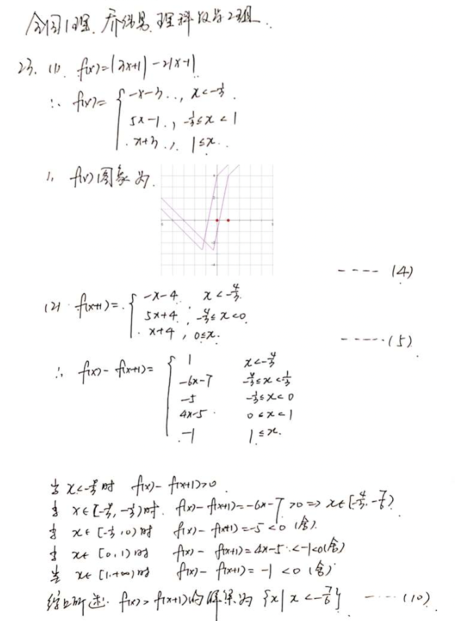 全国1理、乔锦易、理科数学2组.
23. (1) f(x)=|3x+1|-2|x-1|
∴ f(x)= { -x-3.., x<-1/3.
5x-1., -1/3≤x<1
x+3., 1≤x..
∴ f(x)图象为.
---- (4)
(2) f(x+1)= { -x-4 , x<-4/3
5x+4 , -4/3≤x<0
x+4 , 0≤x.
---- (5)
∴ f(x)-f(x+1)= { 1 x<-4/3
-6x-7 -4/3≤x<-1/3
-5 -1/3≤x<0
4x-5 0≤x<1
-1 1≤x.
当 x<-4/3时 f(x)-f(x+1)>0.
当 x∈[-4/3,-1/3)时. f(x)-f(x+1)=-6x-7>0 => x∈[-4/3,-7/6)
当 x∈[-1/3,0)时 f(x)-f(x+1)=-5<0 (舍).
当 x∈[0,1)时 f(x)-f(x+1)=4x-5<-1<0(舍)
当 x∈[1,+∞)时 f(x)-f(x+1)=-1<0 (舍)
综上所述. f(x)>f(x+1)的解集为 {x|x<-7/6} ---- (10)